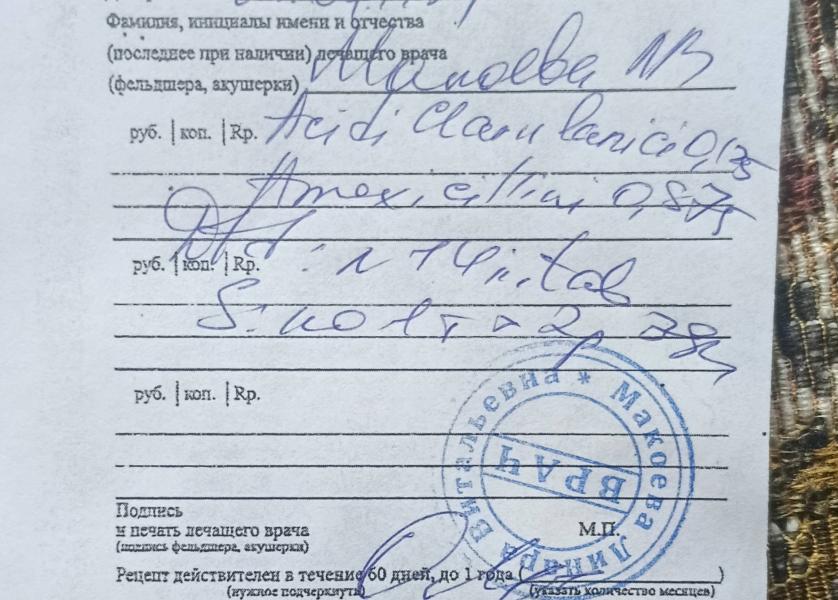 Фамилия, инициалы имени и отчества
(последнее при наличии) лечащего врача
(фельдшера, акушерки) Макоева
руб. | коп. | Rp. Acidi Clavulanici 0,125
Amoxicillini 0,875
руб. | коп. | Rp. : N 14 in tab
S: по 1 т × 2 р
руб. | коп. | Rp.
Макоева Динара Витальевна *
ВРАЧ
Подпись
и печать лечащего врача М.П.
(подпись фельдшера, акушерки)
Рецепт действителен в течение 60 дней, до 1 года ( )
(нужное подчеркнуть) (указать количество месяцев)